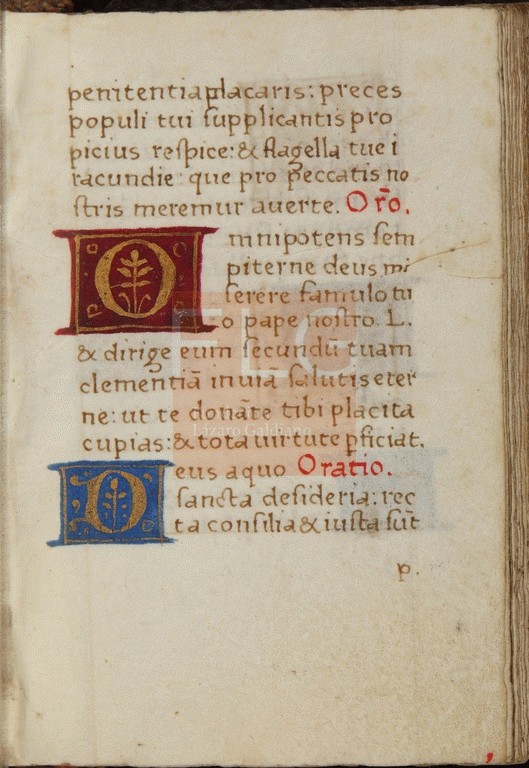 penitentia placaris: preces
populi tui ſupplicantis pro
picius reſpice: & flagella tue i
racundie que pro peccatis no
ſtris meremur auerte. Or̃o.
Omnipotens ſem
piterne deus mi
ſerere famulo tu
o pape noſtro. L.
& dirige eum ſecundũ tuam
clementiã in uiã ſalutis eter
ne: ut te donãte tibi placita
cupias: & tota uirtute p̃ficiat.
Deus a quo Oratio.
ſancta deſideria: rec
ta conſilia & iuſta ſũt
p.
FLG
Lázaro Galdiano